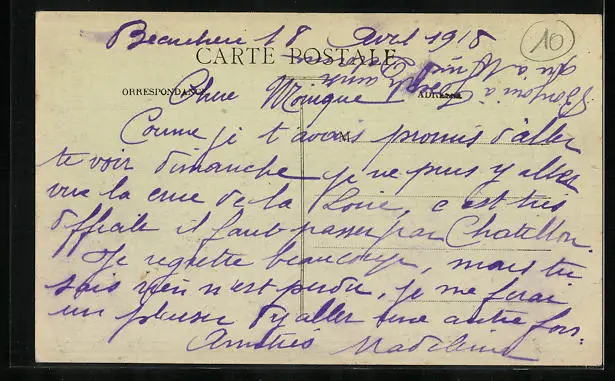 le 8 Avril 1918
10
CARTE POSTALE
CORRESPONDANCE
ADRESSE
Bonjour à
Chère Monique
Comme je t'avais promis d'aller
te voir dimanche je ne puis y aller
vue la crue de la Loire, c'est très
difficile il faut passer par Chatillon.
Je regrette beaucoup, mais tu
sais rien n'est perdu, je me ferai
un plaisir d'y aller une autre fois.
Amitiés Madeleine